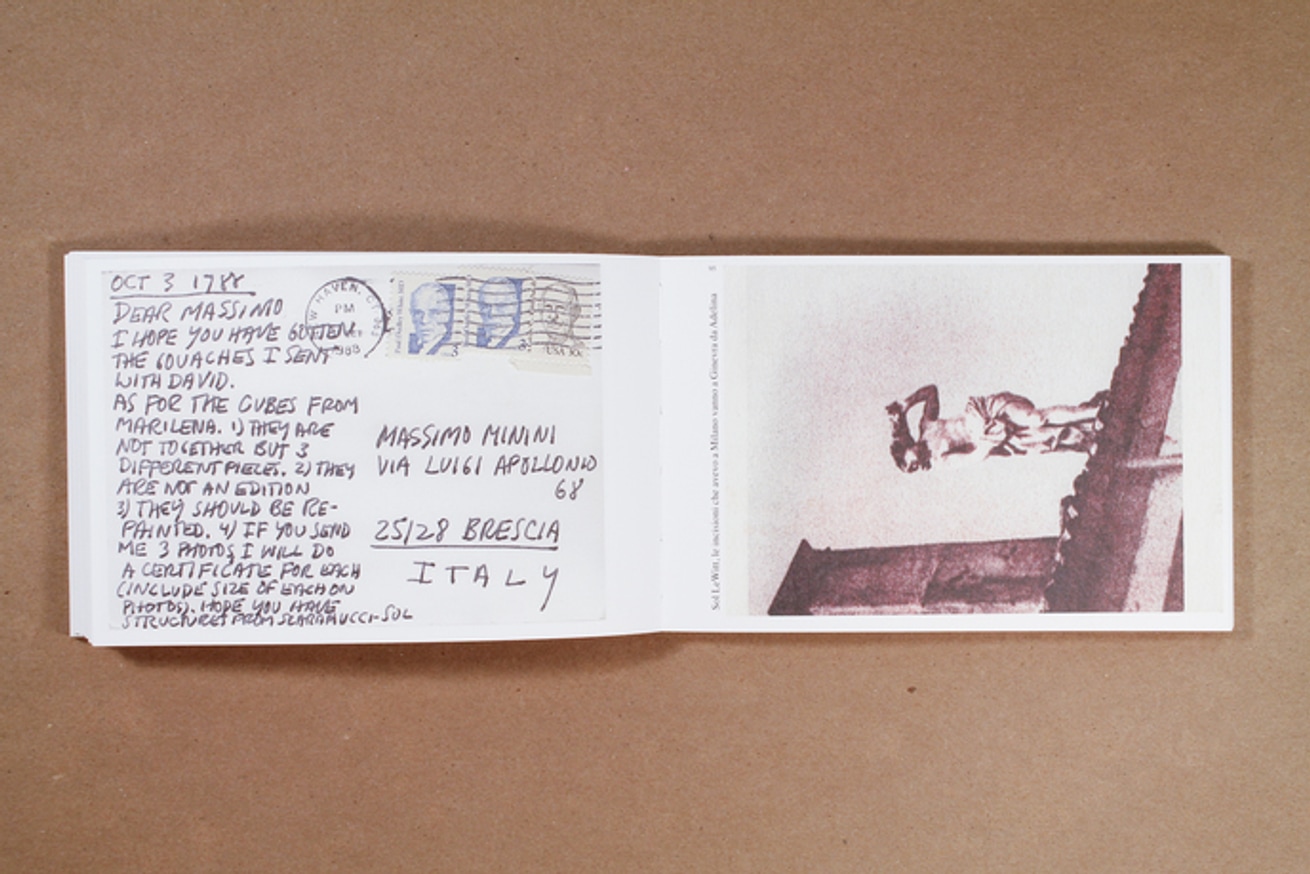 OCT 3 1988
DEAR MASSIMO
I HOPE YOU HAVE GOTTEN
THE GOUACHES I SENT
WITH DAVID.
AS FOR THE CUBES FROM
MARILENA. 1) THEY ARE
NOT TOGETHER BUT 3
DIFFERENT PIECES. 2) THEY
ARE NOT AN EDITION
3) THEY SHOULD BE RE-
PAINTED. 4) IF YOU SEND
ME 3 PHOTOS I WILL DO
A CERTIFICATE FOR EACH
(INCLUDE SIZE OF EACH ON
PHOTOS). HOPE YOU HAVE
STRUCTURES FROM SCARAMUCCI-SOL
W HAVEN, CT
PM
1988
Paul Dudley White MD
3
3
USA 10c
MASSIMO MININI
VIA LUIGI APOLLONIO
68
25128 BRESCIA
ITALY
Sol LeWitt, le incisioni che avevo a Milano vanno a Ginevra da Adelina